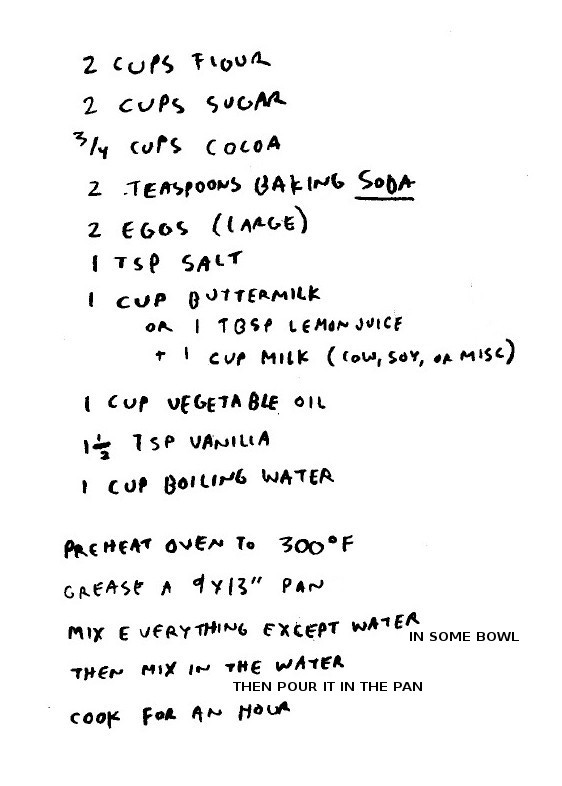 2 CUPS FLOUR
2 CUPS SUGAR
3/4 CUPS COCOA
2 TEASPOONS BAKING SODA
2 EGGS (LARGE)
1 TSP SALT
1 CUP BUTTERMILK
OR 1 TBSP LEMON JUICE
+ 1 CUP MILK (COW, SOY, OR MISC)
1 CUP VEGETABLE OIL
1 1/2 TSP VANILLA
1 CUP BOILING WATER
PREHEAT OVEN TO 300°F
GREASE A 9X13" PAN
MIX EVERYTHING EXCEPT WATER IN SOME BOWL
THEN MIX IN THE WATER
THEN POUR IT IN THE PAN
COOK FOR AN HOUR